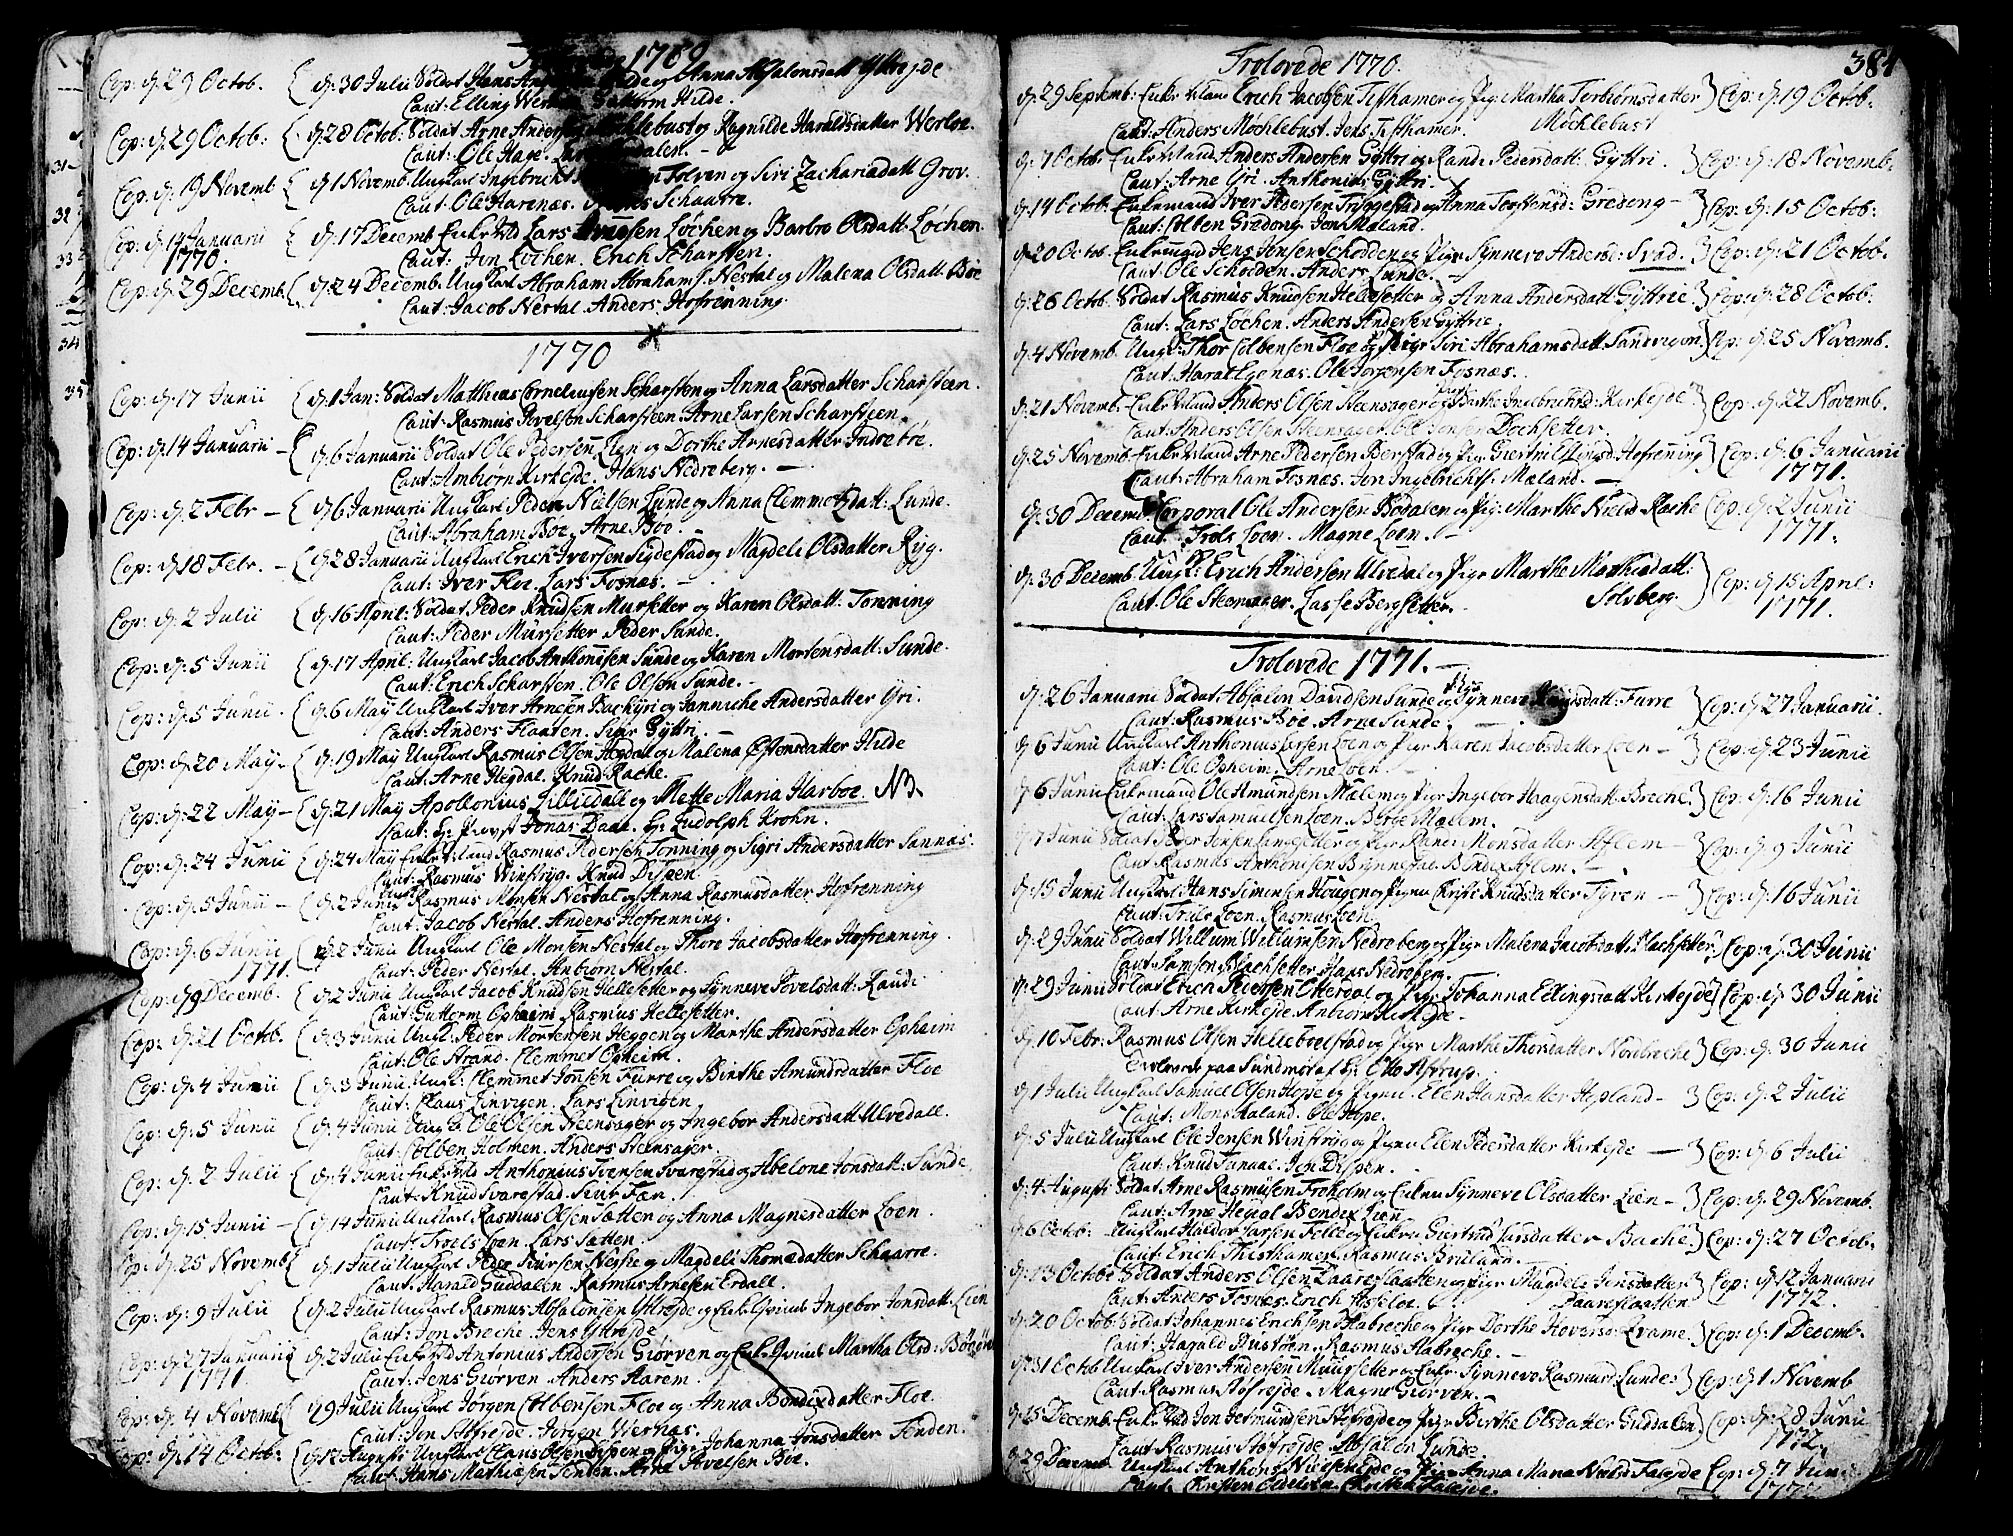 Trolovede 1769
Cop: d. 29 Octob. { d. 30 Julii Soldat Hans og Anna Absalonsdatt Yttrejde
Caut: Elling Guttorm Hilde.
Cop: d. 29 Octob: { d. 28 Octob: Soldat Arne Andersen Mochlebust og Ragnilde Haraldsdatter Werloe.
Caut: Ole Hage.
Cop: d. 19 Novemb { d. 1 Novemb. Ungkarl Ingebricht Tolven og Siri Zachariadatt Grov.
Caut: Ole Harenæs. Schaarre.
Cop: d. 14 Januarii { d. 17 Decemb Enke Md Lars Løchen og Barbro Olsdatt: Løchen.
1770. Caut: Jon Løchen. Erich Scharsten.
Cop: d. 29 Decemb. { d. 24 Decemb. Ungkarl Abraham Abrahams. Nestal og Malena Olsdatt: Bøe
Caut: Jacob Nestal. Anders Hofrenning
1770
Cop: d. 17 Junii { d. 1 Jan: Soldat Matthias Corneliussen Scharsten og Anna Larsdatter Scharsteen.
Caut: Rasmus Povelsen Scharsteen. Arne Larsen Scharsteen.
Cop: d. 14 Januarii { d. 6 Januarii Soldat Ole Pedersen Elen og Dorthe Arnesdatter Indrebøe.
Caut: Ambiørn Kirkejde. Hans Nedreberg.
Cop: d. 2 Febr { d. 6 Januarii Ungkarl Peder Nielsen Lunde og Anna Clemmetsdatt: Lunde.
Caut: Abraham Boe. Arne Boe.
Cop: d. 18 Febr. { d. 28 Januarii Ungkarl Erich Iversen Sigdestad og Magdele Olsdatter Ryg.
Caut: Iver Floe. Lars Fosnæs.
Cop: d. 2 Julii { d. 16 April: Soldat Peder Knudsen Mursetter og Karen Olsdatt: Tonning
Caut: Peder Mursetter. Peder Sunde.
Cop: d. 5 Junii { d. 17 April: Ungkarl Jacob Anthonisen Sunde og Karen Mortensdatt: Sunde.
Caut: Erich Scharsten. Ole Olsen Sunde.
Cop: d. 5 Junii { d. 6 May Ungkarl Iver Arnesen Bachyri og Jannicke Andersdatter Yri.
Caut: Anders Flaaten. Siur Gyttri.
Cop: d. 20 May { d. 19 May Ungkarl Rasmus Olsen Hegdal og Malena Østensdatter Hilde
Caut: Arne Hegdal. Knud Rache.
Cop: d. 22 May { d. 21 May Apollonius Lilliedall og Mette Maria Harboe. NB.
Caut: Hr. Provst Jonas Daae. Hr. Ludolph Krohn.
Cop: d. 24 Junii { d. 24 May Enke Mand Rasmus Pedersen Tonning og Sigri Andersdatter Sannæs.
Caut: Rasmus Winsryg. Knud Dispen
Cop: d. 5 Junii { d. 2 Junii Rasmus Monsen Nestal og Anna Rasmusdatter Hofrenning
Caut: Jacob Nestal. Anders Hofrenning.
Cop: d. 6 Junii { d. 2 Junii Ungkarl Ole Monsen Nestal og Thore Jacobsdatter Hofrenning
1771. Caut: Peder Nestal. Anbiørn Nestal.
Cop: d. 9 Decemb. { d. 2 Junii Ungkarl Jacob Knudsen Hellesetter og Synneve Povelsdatt: Raudi
Caut: Guttorm Opheim Rasmus Hellesetter.
Cop: d. 21 Octob. { d. 3 Junii Ungk: Peder Mortensen Heggen og Marthe Andersdatter Opheim
Caut: Ole Strand. Clemmet Opheim.
Cop: d. 4 Junii { d. 3 Junii Ungk: Clemmet Jonsen Furre og Birthe Amundsdatter Floe
Caut: Claus Linvigen. Lars Linvigen.
Cop: d. 5 Junii { d. 4 Junii Ole Olsen Steensager og Ingebor Andersdatt. Ulvedall.
Caut: Colben Holmen. Anders Steensager.
Cop: d. 2 Julii { d. 4 Junii Enke Md Anthonius Svarestad og Abelone Jonsdatt: Sunde
Caut: Knud Svarestad. Siur Fæn.
Cop: d. 15 Junii { d. 14 Junii Ungkarl Rasmus Olsen Sætten og Anna Magnesdatter Loen.
Caut: Troels Loen. Lars Sætten.
Cop: d. 25 Novemb { d. 1 Julii Ungkarl Peder Siursen Nesse og Magdeli Thomædatter Schaarre.
Caut: Harald Guddalen. Rasmus Arnesen Erdall.
Cop: d. 9 Julii { d. 2 Julii Ungkarl Rasmus Absalonsen Yttrejde og Enkeqvinde Ingebor Jonsdatt: Lien
Caut: Jon Breche. Jens Yttrejde.
Cop: d. 27 Januarii { d. 2 Julii Enke Md Antonius Andersen Giørven og Enke Qvinde Martha Olsd:
1771. Caut: Jens Giørven. Anders Aarem.
Cop: d. 4 Novemb { d. 9 Julii Ungkarl Jørgen Colbensen Floe og Anna Bendixdatter Floe.
Caut: Jon Jørgen Wernæs.
Cop: d. 14 Octb: { d. 12 August: Ungkarl Claus Olsen og Pige Johanna Jonsdatter Tenden.
Caut: Hans Mathiasen Tenden. Arne Povelsen Boe.
384
Trolovede 1770.
d. 29 Septemb: Enke Mand Erich Jacobsen Tisthamer og Pig: Martha Torbiørnsdatter } Cop: d. 19 Octob:
Caut: Anders Mochlebust. Jens Tisthamer. Mochlebust
d. 7 Octob: Enke Mand Anders Andersen Gyttri og Rande Pedersdatt: Gyttri. } Cop: d. 18 Novemb.
Caut: Arne Yri. Anthonius Gyttri.
d. 14 Octob: Enkemand Iver Pedersen og Anna Torstensd: Gredong } Cop: d. 15 Octob:
Caut: Colben Gredong. Jon Mæland.
d. 20 Octob. Enkemand Jens Jonsen Schodden og Pige Synneve Anders: Svad. } Cop: d. 21 Octob.
Caut: Ole Schodden. Anders Lunde.
d. 26 Octob. Soldat Rasmus Knudsen Hellesetter og Anna Andersdatt Gyttrie } Cop: d. 28 Octob:
Caut: Lars Løchen. Anders Andersen Gyttrie.
d. 4 Novemb. Ungk: Thor Colbensen Floe og Pige Siri Abrahamsdatt: } Cop: d. 25 Novemb.
Caut: Harald Egenæs. Ole Jørgensen Fosnæs.
d. 21 Novemb: Enke Mand Anders Olsen Steensager og Birthe Kirkejde } Cop: d. 22 Novemb.
Caut: Anders Olsen Steensager.
d. 25 Novemb. Enke Mand Arne Pedersen Berstad og Pige Giertrue Ellingsd: Hofrenning } Cop: d. 6 Januarii
Caut: Abraham Fosnæs. Jon Ingebrichts: Mæland. 1771.
d. 30 Decemb: Corporal Ole Andersen Bødalen og Pig: Marthe Nielsd Rache Cop: d. 2 Junii
Caut: Trols Loen. Magne Loen. 1771.
d. 30 Decemb. Ungk: Erich Andersen Ulvedal og Pige Marthe Mathiasdatt: } Cop: d. 15 April:
Caut: Ole Steensager. Lasse Bergsetter. Solvberg. 1771.
Trolovede 1771.
d. 26 Januarii Soldat Absalon Davidsen Sunde og Pige Synneve Furre } Cop: d. 27 Januarii.
Caut: Rasmus Boe. Arne Sunde.
d. 6 Junii Ungkarl Anthonius Larsen Loen og Pige Karen Jacobsdatter Loen } Cop: d. 23 Junii
Caut: Ole Opheim. Arne Loen.
d. 6 Junii Enkemand Ole Amundsen Mælem og Pige Ingebor Haagensdatt: Breche } Cop: d. 16 Junii
Caut: Lars Samuelsen Loen. Børge Mælem.
d. 7 Junii Soldat Peder Jensen og Pige Rande Monsdatter Aflem } Cop: d. 9 Junii
Caut: Rasmus Anthonisen. Bendix Aflem.
d. 15 Junii Ungkarl Hans Simensen Hougen og Pigen Christi Knudsdatter Tyren } Cop: d. 16 Junii
Caut: Trols Loen. Rasmus Loen.
d. 29 Junii Soldat Willum Willumsen Nedreberg og Pige Malena Jacobsdatt: } Cop: d. 30 Junii
Caut: Samson. Hans Nedreberg.
d. 29 Junii Soldat Erich Pedersen Otterdal og Pige Johanna Ellingsdatt Kirkejde } Cop: d. 30 Junii
Caut: Arne Kirkejde. Anbiørn Kirkejde.
d. 10 Febr: Rasmus Olsen Helleboelstad og Pige Marthe Thorsdatter Nordbreche } Cop: d. 30 Junii
Trolovede paa Sundmør af Hr: Otto Astrup.
d. 1 Julii Ungkarl Samuel Olsen Hope og Pigen Elen Hansdatter Hopland } Cop: d. 2 Julii
Caut: Mons Aaland. Ole Hope.
d. 5 Julii Ungkarl Ole Jensen Winsryg og Pigen Elen Pedersdatter Kirkejde } Cop: d. 6 Julii
Caut: Knud Sunde. Jon Dispen.
d. 4 August: Soldat Arne Rasmusen Froholm og Enken Synneve Olsdatter Lien } Cop: d. 29 Novemb.
Caut: Arne Hegdal. Bendix Lien
d. 6 Octob: Ungkarl Haldor Larsen Felle og Enken Giertrud Larsdatter Bache } Cop: d. 27 Octob:
Caut: Erich Thisthamer. Rasmus Bruland.
d. 13 Octob: Soldat Anders Olsen Laareflaatten og Pige Magdele Jensdatter } Cop: d. 12 Januarii
Caut: Anders Fosnæs. Erich Laareflaatten. 1772.
d. 20 Octob: Soldat Johannes Erichsen Habreche og Pige Dorthe Hoversd: Qvame } Cop: d. 1 Decemb.
Caut: Hagald Austøen. Rasmus Habreche.
d. 31 Octob Ungkarl Iver Andersen Muursetter og Enke Synneve Rasmusd: Lunde } Cop: d. 1 Novemb
Caut: Rasmus. Magne Giørven.
d. 15 Decemb. Enke Md Jon Jetmundsen og Pige Birthe Olsdatter Guddalen } Cop: d. 28 Junii
Caut: Rasmus. Absalon Sunde. 1772.
d. 29 Decemb. Ungkarl Anthoni Nielsen og Pige Anna Maria Nielsd. Falejde Cop: d. 7 Junii
Caut: Christen. Christen Falejde. 1772